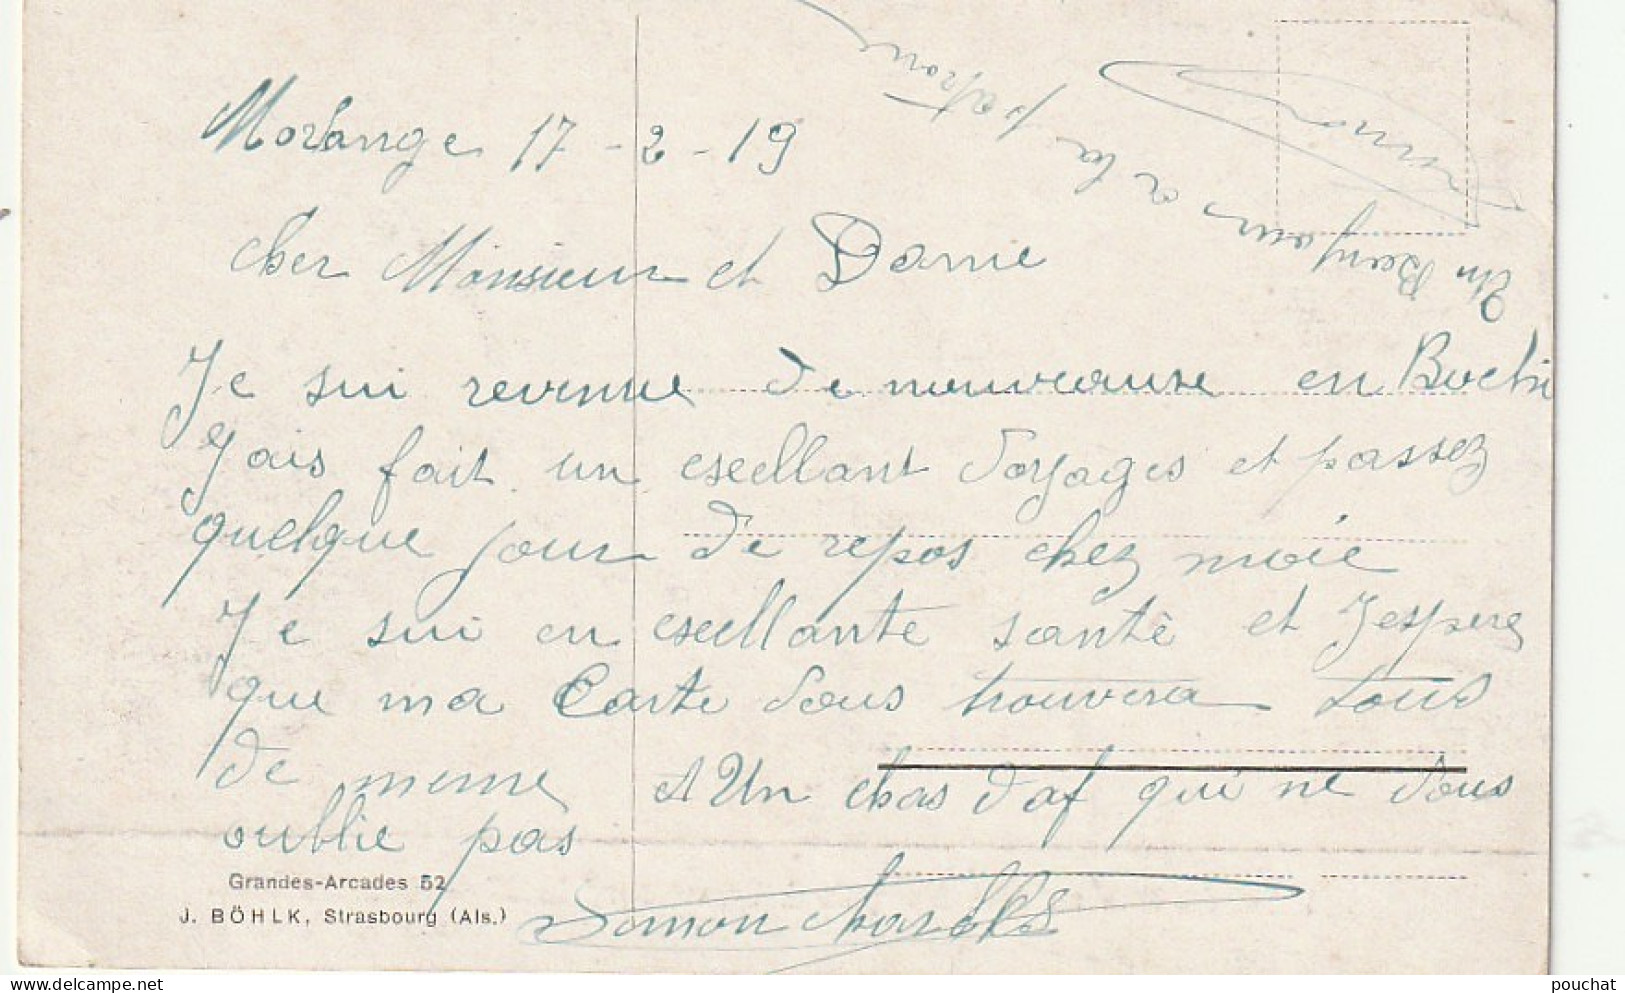 Morhange 17-2-19
Cher Monsieur et Dame
Je sui revenue de nouveause en Bochi
Jais fait un esellant Voyages et passez
quelque jour de repos chez moie
Je sui en esellante santé et Jespere
que ma Carte Vous trouvera tous
de meme At Un chas d'af qui ne Vous
oublie pas
Simon Charles
Un Bonjour a la patrone
Simon
Grandes-Arcades 52
J. BÖHLK, Strasbourg (Als.)
www.delcampe.net
pouchat